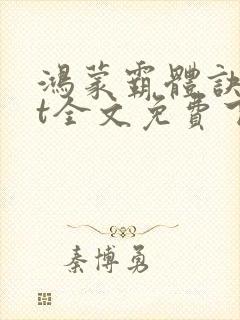 鴻蒙霸體訣
t全文免費
秦博勇